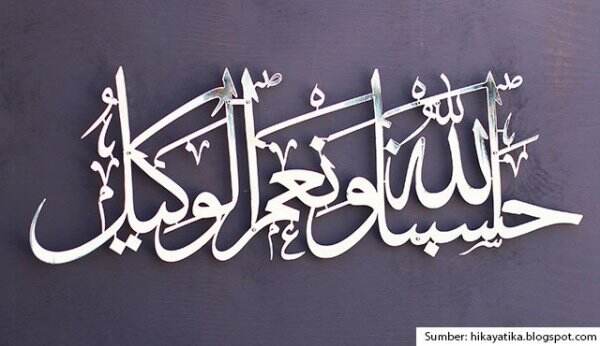 حسبنا الله ونعم الوكيل
Sumber: hikayatika.blogspot.com